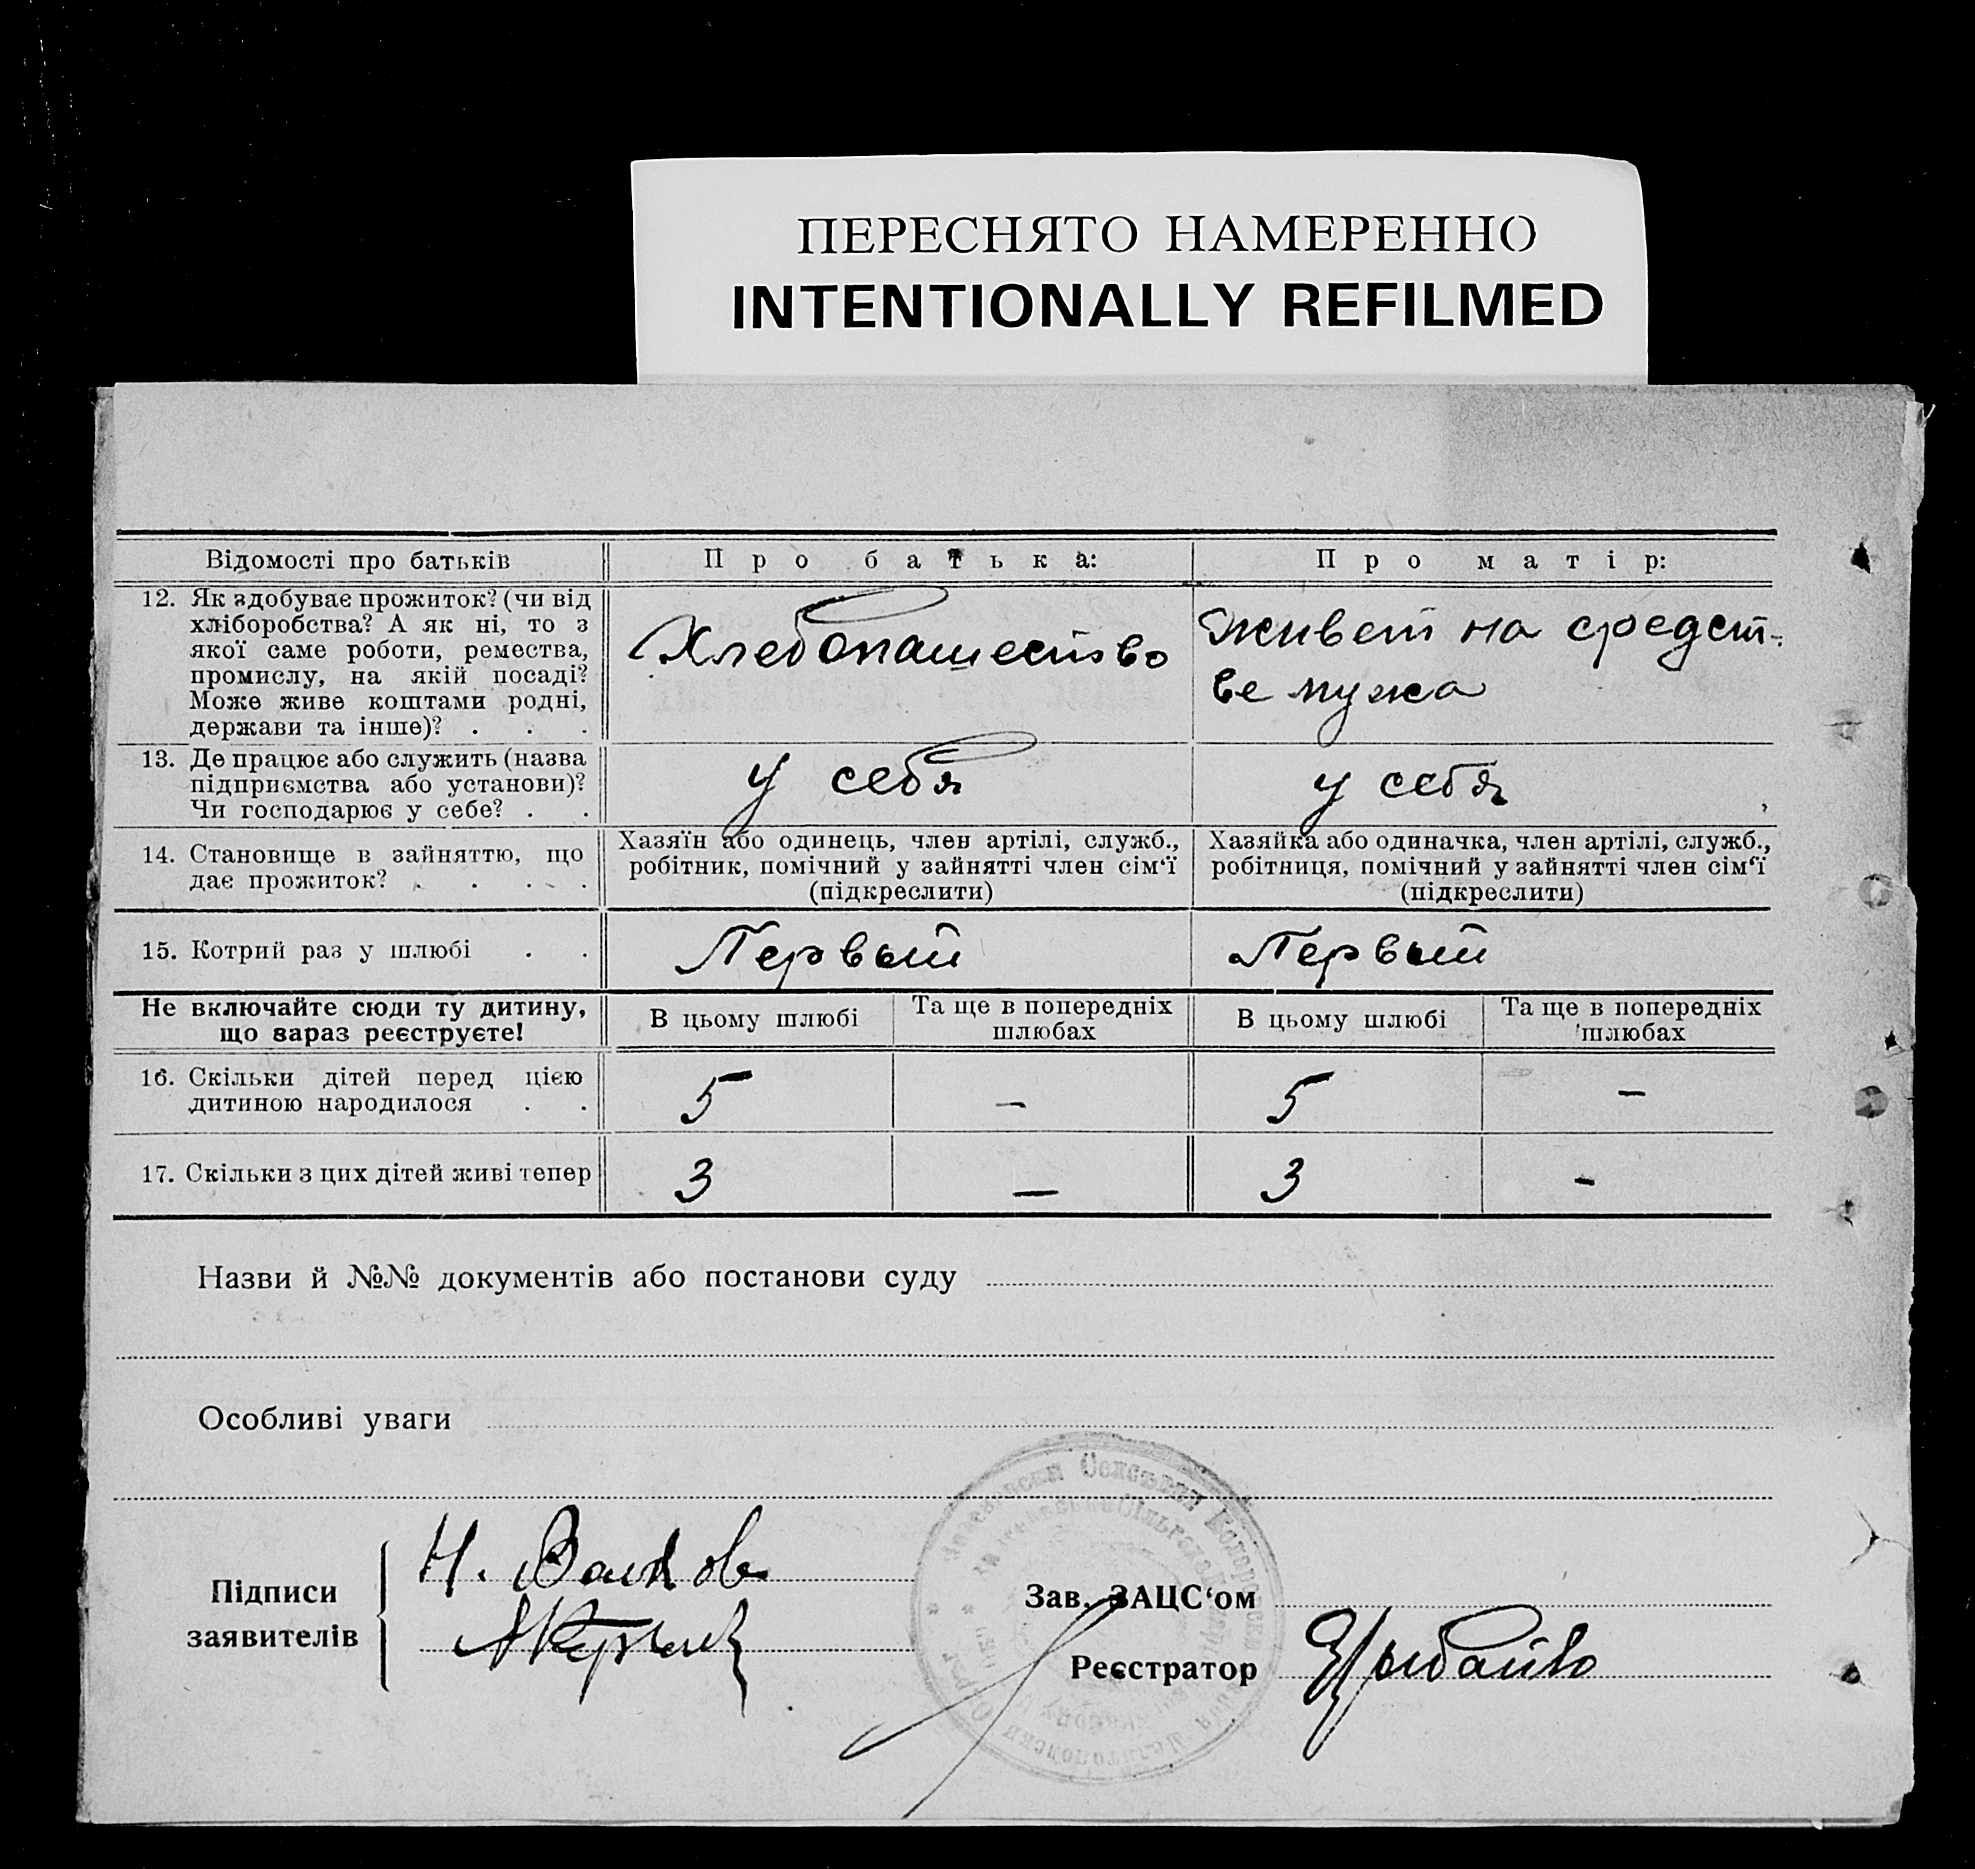 ПЕРЕСНЯТО НАМЕРЕННО
INTENTIONALLY REFILMED
Відомості про батьків
Про батька:
Про матір:
12. Як здобуває прожиток? (чи від
хліборобства? А як ні, то з
якої саме роботи, ремества,
промислу, на якій посаді?
Може живе коштами родні,
держави та інше)? . . .
Хлебопашество
живет на средст-
ве мужа
13. Де працює або служить (назва
підприємства або установи)?
Чи господарює у себе? . .
у себя
у себя
14. Становище в зайняттю, що
дає прожиток? . . . .
Хазяїн або одинець, член артілі, служб.,
робітник, помічний у зайнятті член сім‘ї
(підкреслити)
Хазяйка або одиначка, член артілі, служб.,
робітниця, помічний у зайнятті член сім‘ї
(підкреслити)
15. Котрий раз у шлюбі . .
Первый
Первый
Не включайте сюди ту дитину,
що зараз реєструєте!
В цьому шлюбі
Та ще в попередніх
шлюбах
В цьому шлюбі
Та ще в попередніх
шлюбах
16. Скільки дітей перед цією
дитиною народилося . .
5
—
5
—
17. Скільки з цих дітей живі тепер
3
—
3
-
Назви й №№ документів або постанови суду
Особливі уваги
Підписи
заявителів
Н. Волков
Зав. ЗАЦС‘ом
Реєстратор